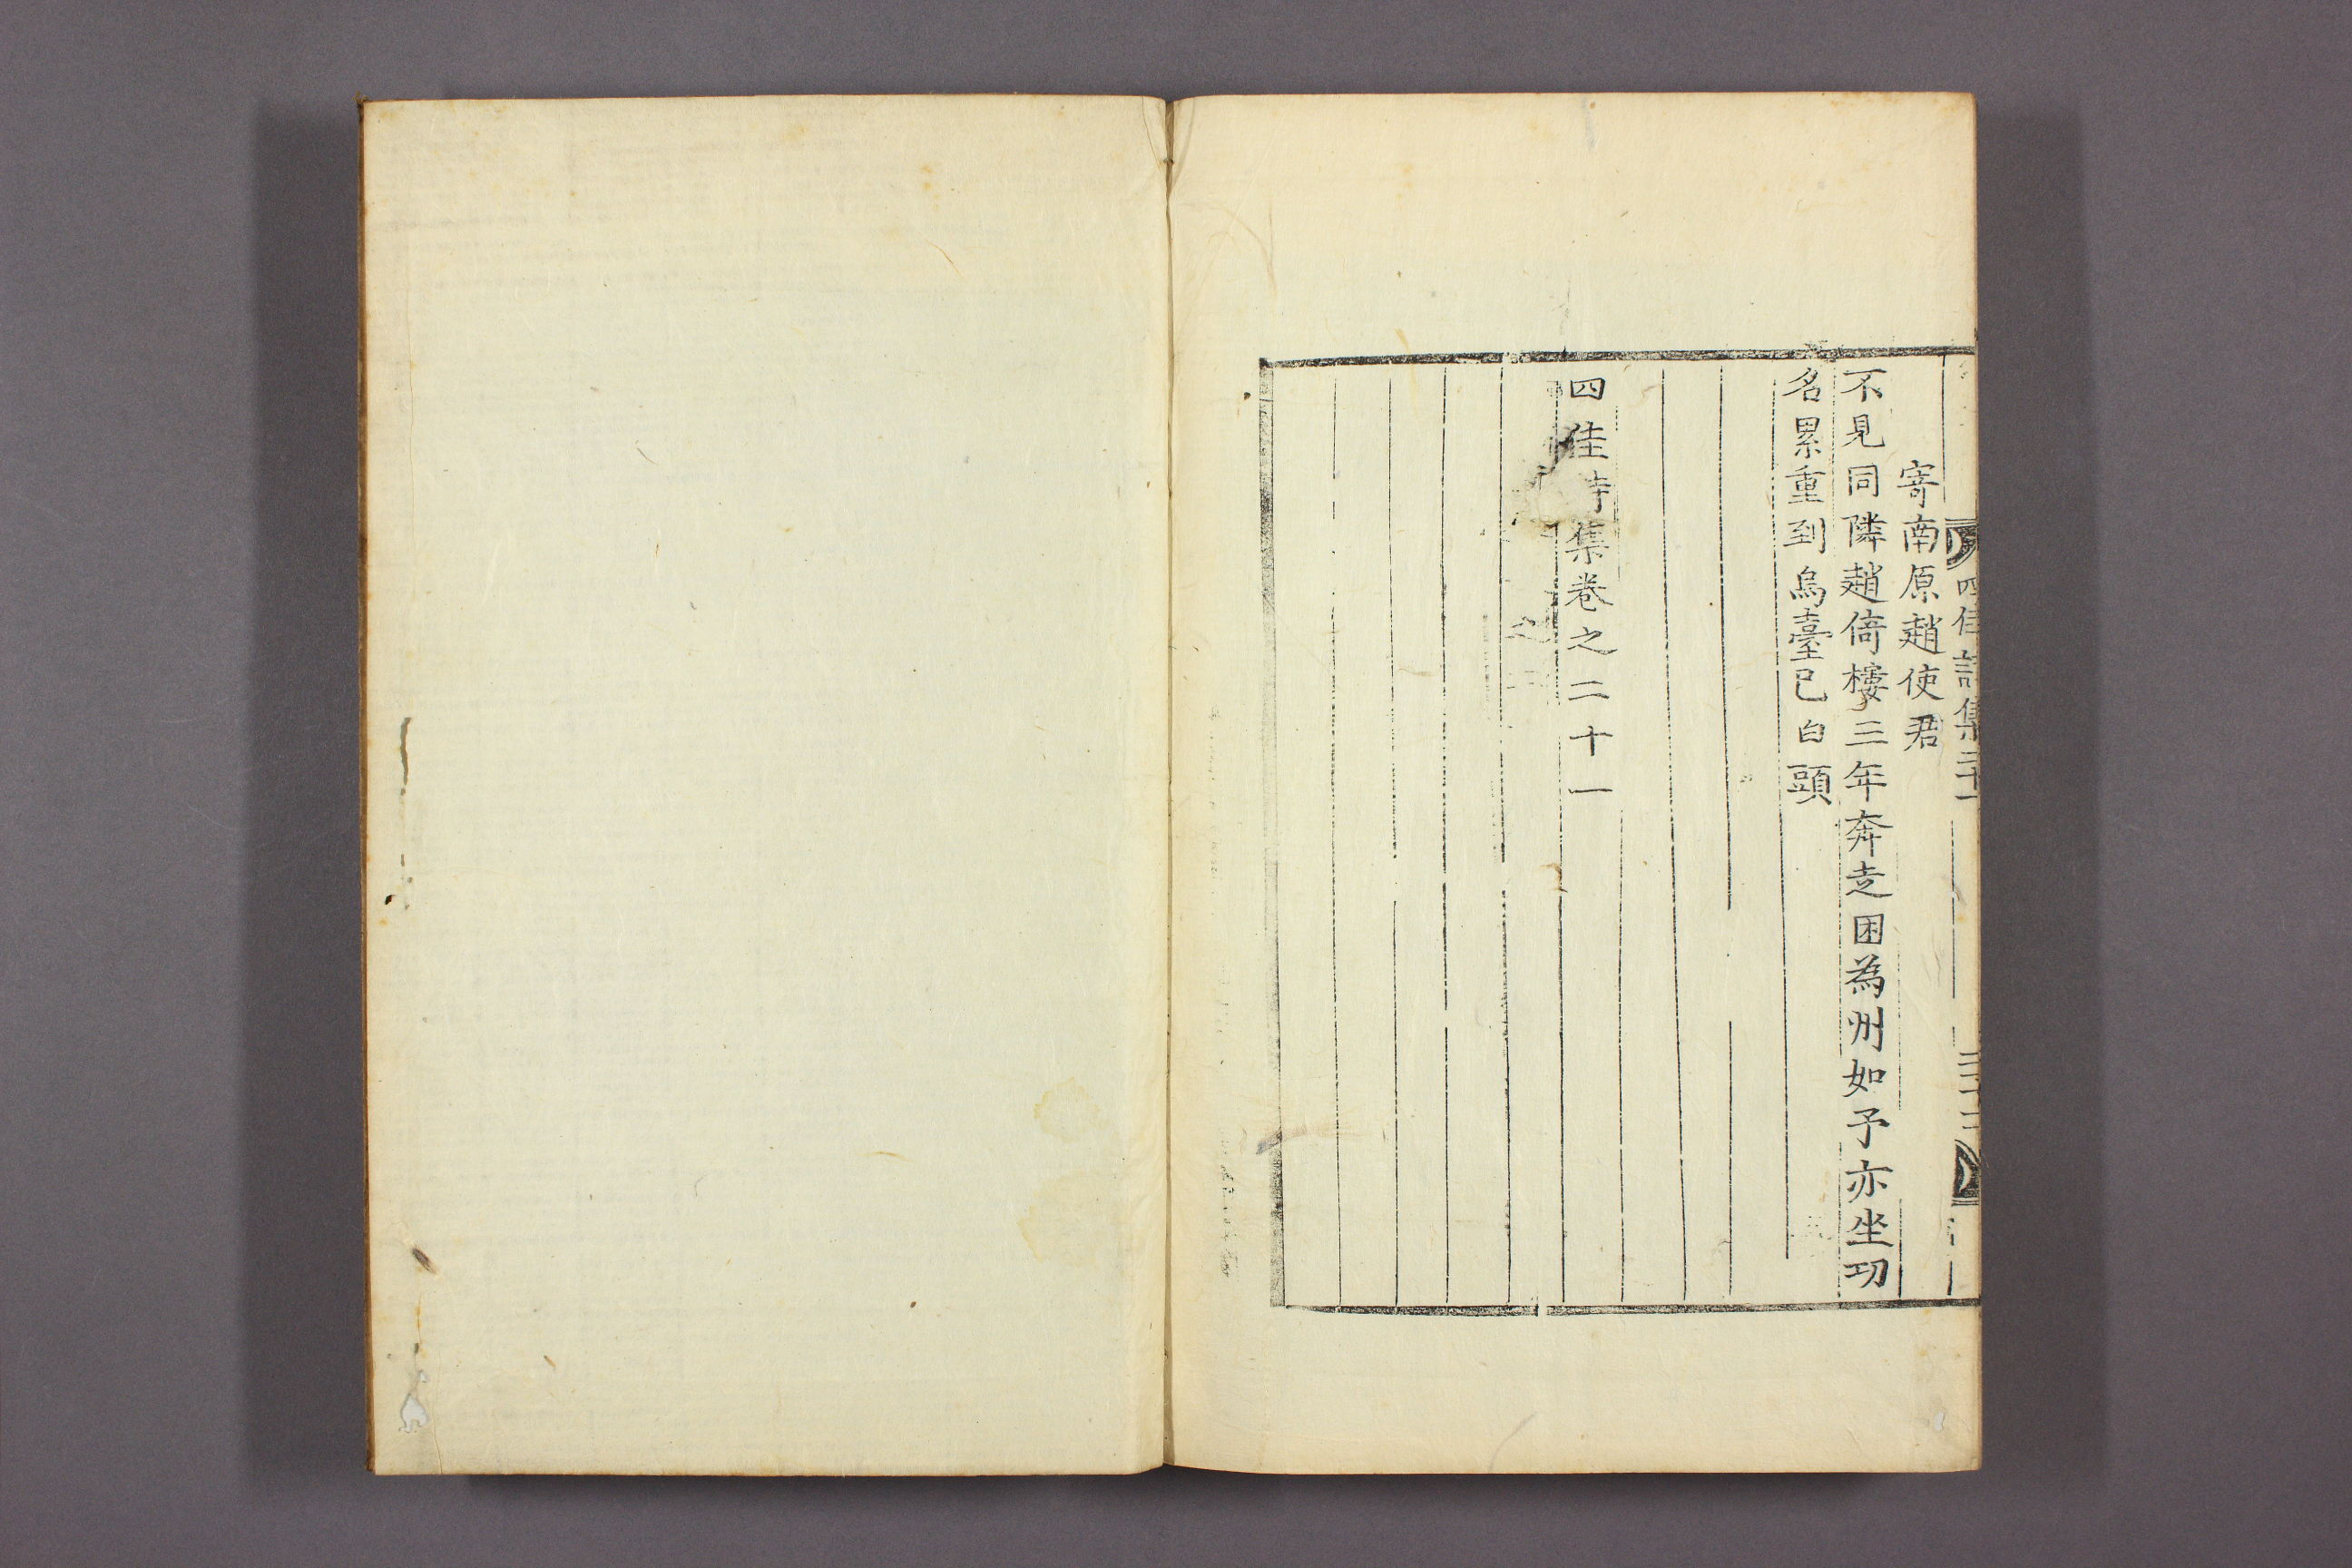 四佳詩集二十一 二十三
寄南原趙使君
不見同隣趙倚樓三年奔走困為州如予亦坐功
名累重到烏臺已白頭
四佳詩集卷之二十一